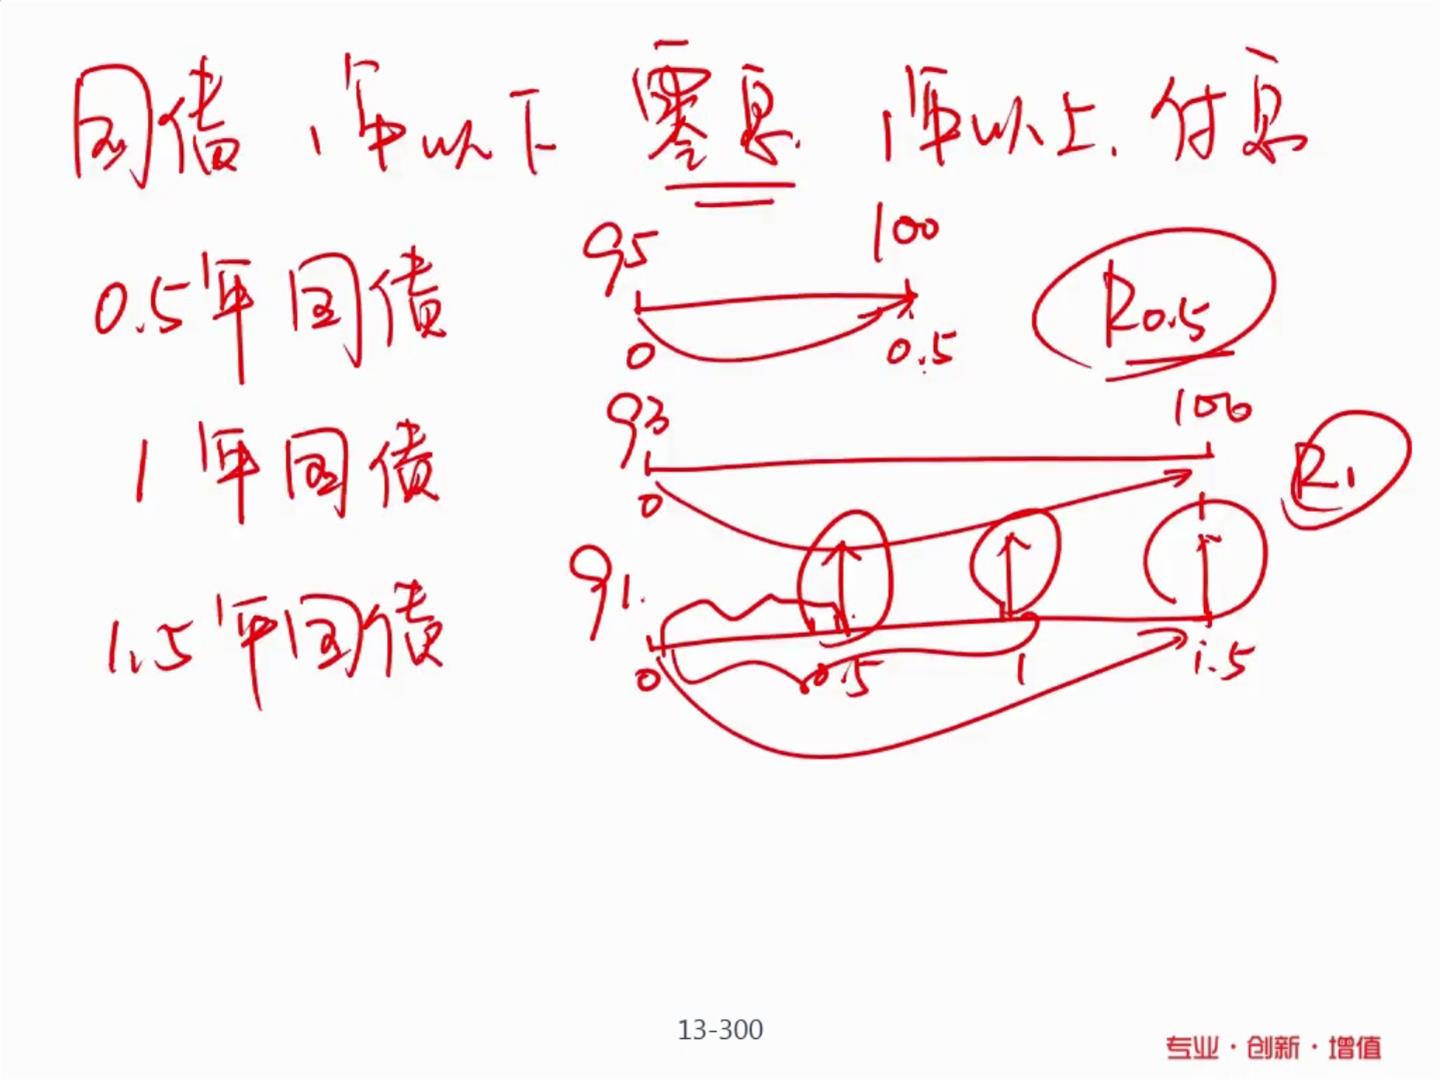 国债 1年以下 零息. 1年以上. 付息
95 100
0.5年国债 R0.5
0 0.5
93 100
1年国债 R1
0
91.
1.5年国债
0 0.5 1 1.5
13-300
专业·创新·增值